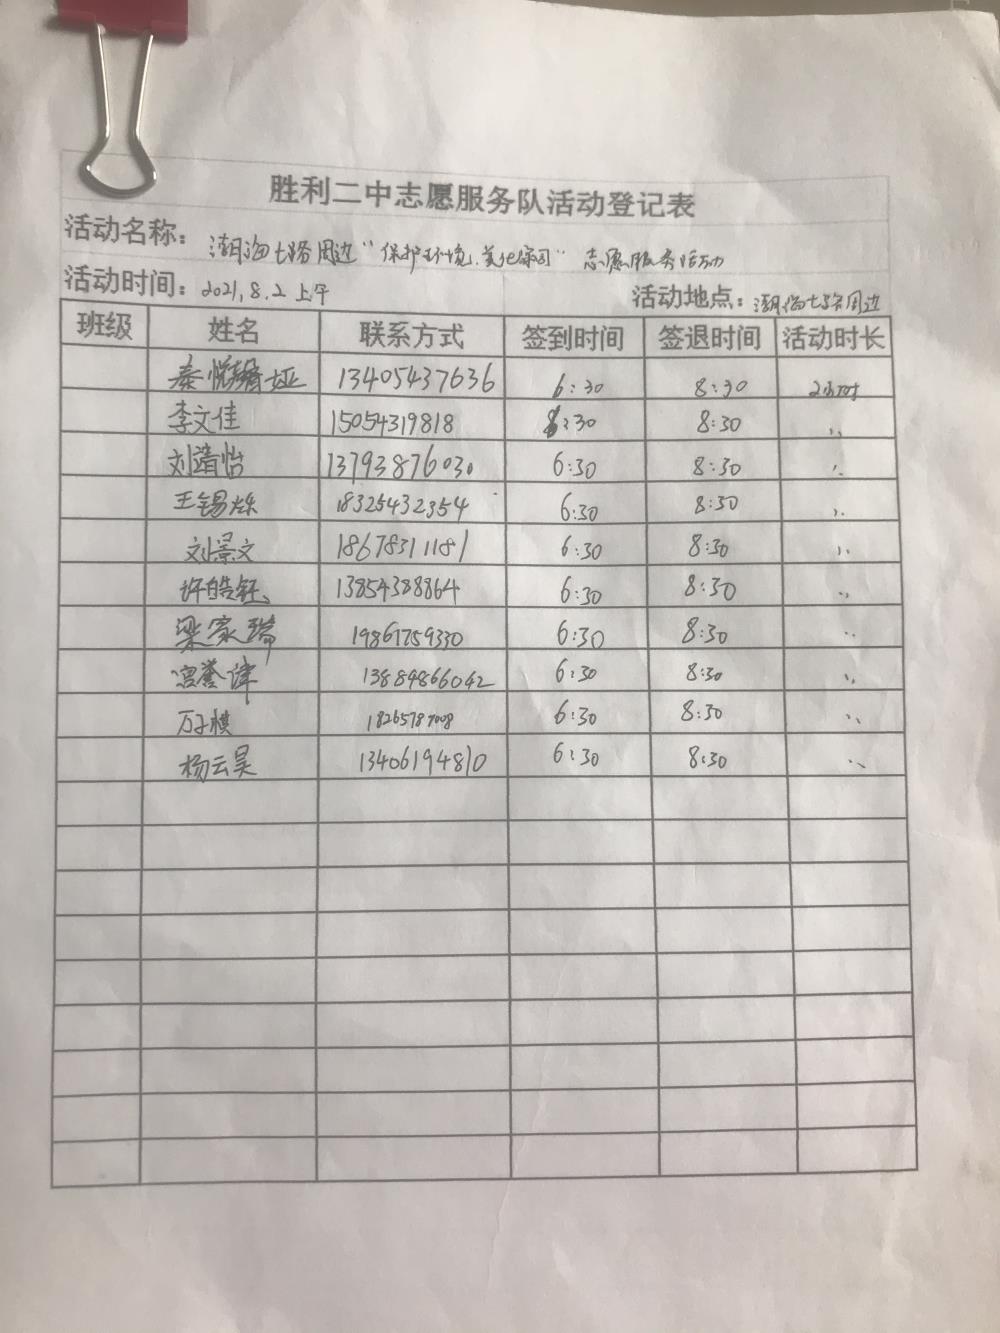 胜利二中志愿服务队活动登记表
活动名称： 潮海七路周边“保护环境、美化家园” 志愿服务活动
活动时间：2021.8.2 上午 活动地点：潮海七路周边
班级 姓名 联系方式 签到时间 签退时间 活动时长
13405437636 6:30 8:30 2小时
李文佳 15054319818 6:30 8:30 〃
刘靖怡 13793876030 6:30 8:30 〃
王锡烁 18325432354 6:30 8:30 〃
刘景文 18678311181 6:30 8:30 〃
许皓钰 13854388864 6:30 8:30 〃
梁家瑞 19861759330 6:30 8:30 〃
宫誉谭 13884866042 6:30 8:30 〃
万子棋 18265787008 6:30 8:30 〃
杨云昊 13406194810 6:30 8:30 〃